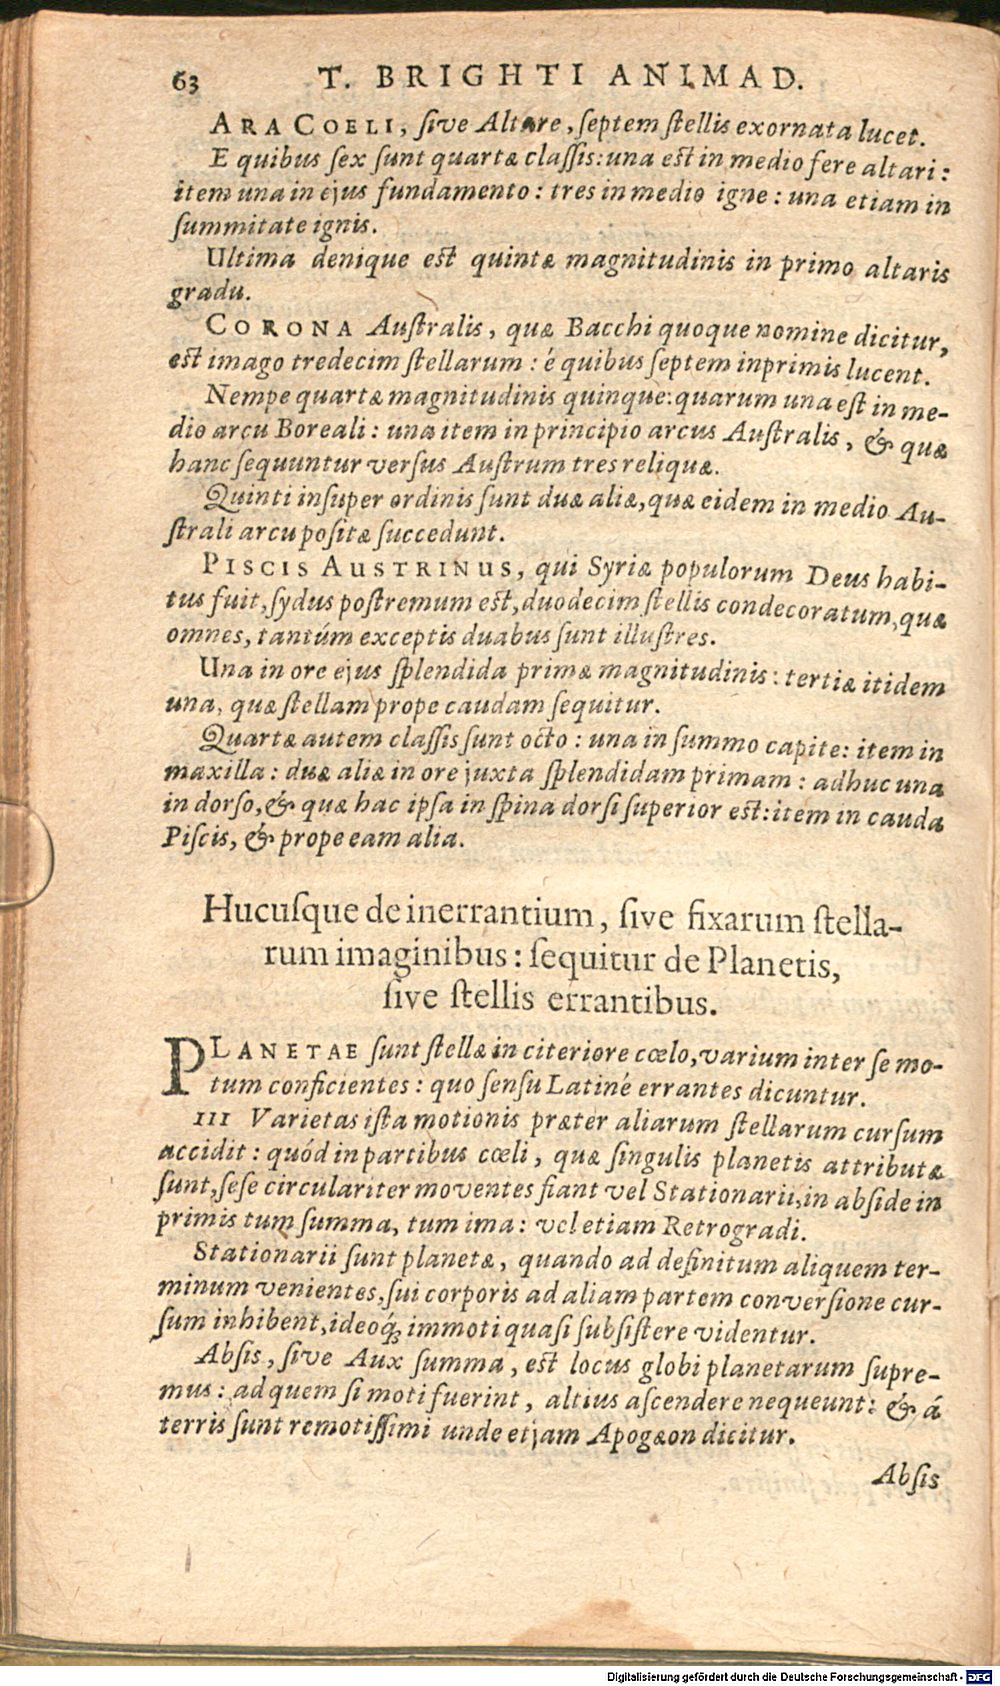 63 T. BRIGHTI ANIMAD.
ARA COELI, ſive Altare, ſeptem ſtellis exornata lucet.
E quibus ſex ſunt quartæ claſſis: una eſt in medio fere altari:
item una in ejus fundamento: tres in medio igne: una etiam in
ſummitate ignis.
Ultima denique eſt quintæ magnitudinis in primo altaris
gradu.
CORONA Auſtralis, quæ Bacchi quoque nomine dicitur,
eſt imago tredecim ſtellarum: é quibus ſeptem inprimis lucent.
Nempe quartæ magnitudinis quinque: quarum una eſt in me-
dio arcu Boreali: una item in principio arcus Auſtralis, & quæ
hanc ſequuntur verſus Auſtrum tres reliquæ.
Quinti inſuper ordinis ſunt duæ aliæ, quæ eidem in medio Au-
ſtrali arcu poſitæ ſuccedunt.
PISCIS AUSTRINUS, qui Syriæ populorum Deus habi-
tus fuit, ſydus poſtremum eſt, duodecim ſtellis condecoratum, quæ
omnes, tantúm exceptis duabus ſunt illuſtres.
Una in ore ejus ſplendida primæ magnitudinis: tertiæ itidem
una, quæ ſtellam prope caudam ſequitur.
Quartæ autem claſſis ſunt octo: una in ſummo capite: item in
maxilla: duæ aliæ in ore juxta ſplendidam primam: adhuc una
in dorſo, & quæ hac ipſa in ſpina dorſi ſuperior eſt: item in cauda
Piſcis, & prope eam alia.
Hucuſque de inerrantium, ſive fixarum ſtella-
rum imaginibus: ſequitur de Planetis,
ſive ſtellis errantibus.
PLANETAE ſunt ſtellæ in citeriore cœlo, varium inter ſe mo-
tum conficientes: quo ſenſu Latiné errantes dicuntur.
III Varietas iſta motionis præter aliarum ſtellarum curſum
accidit: quód in partibus cœli, quæ ſingulis planetis attributæ
ſunt, ſeſe circulariter moventes fiant vel Stationarii, in abſide in
primis tum ſumma, tum ima: vel etiam Retrogradi.
Stationarii ſunt planetæ, quando ad definitum aliquem ter-
minum venientes, ſui corporis ad aliam partem converſione cur-
ſum inhibent, ideoq́; immoti quaſi ſubſiſtere videntur.
Abſis, ſive Aux ſumma, eſt locus globi planetarum ſupre-
mus: ad quem ſi moti fuerint, altius aſcendere nequeunt: & á
terris ſunt remotiſſimi unde etjam Apogæon dicitur.
Abſis
Digitalisierung gefördert durch die Deutsche Forschungsgemeinschaft - DFG